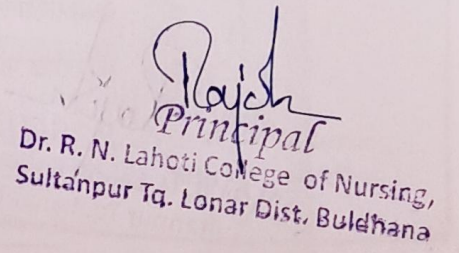 Rajesh
Principal
Dr. R. N. Lahoti College of Nursing,
Sultanpur Tq. Lonar Dist. Buldhana